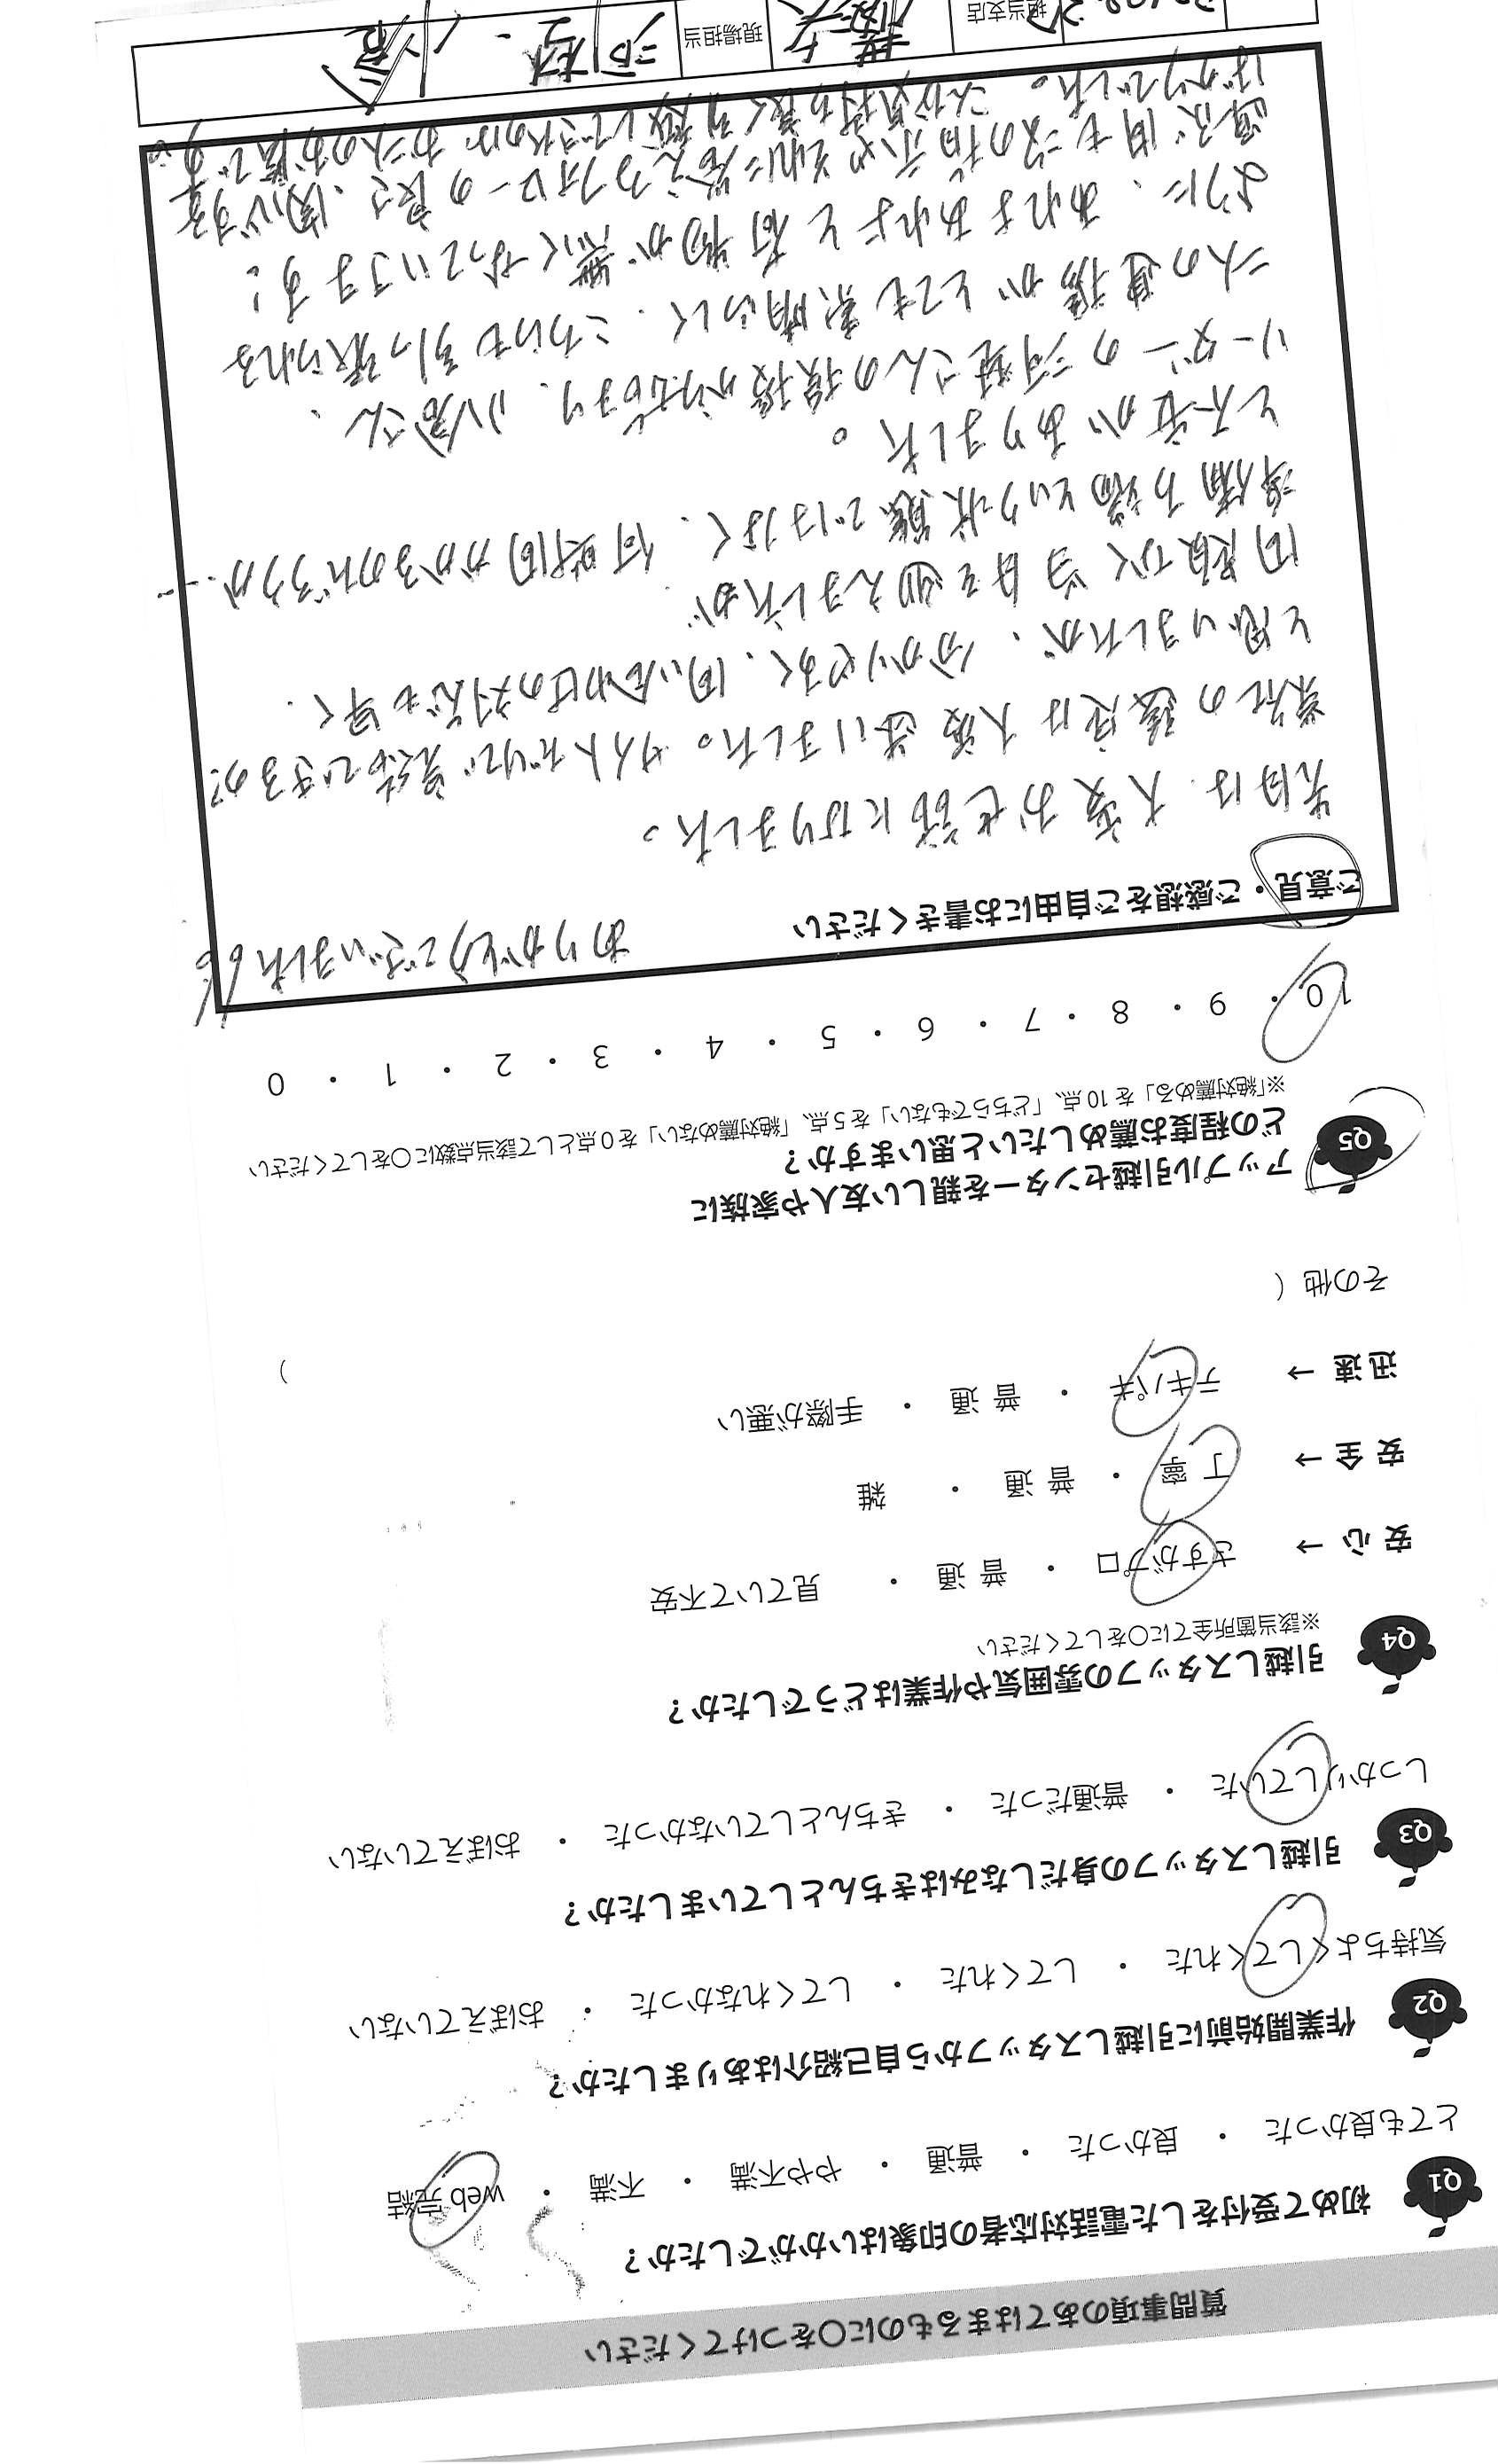 質問事項のあてはまるものに〇をつけてください
Q1 初めて受付をした電話対応者の印象はいかがでしたか？
とても良かった ・ 良かった ・ 普通 ・ やや不満 ・ 不満 ・ web 完結
Q2 作業開始前に引越しスタッフから自己紹介はありましたか？
気持ちよくしてくれた ・ してくれた ・ してくれなかった ・ おぼえていない
Q3 引越しスタッフの身だしなみはきちんとしていましたか？
しっかりしていた ・ 普通だった ・ きちんとしていなかった ・ おぼえていない
Q4 引越しスタッフの雰囲気や作業はどうでしたか？
※該当箇所全てに〇をしてください
安 心 → さすがプロ ・ 普 通 ・ 見ていて不安
安 全 → 丁 寧 ・ 普 通 ・ 雑
迅 速 → テキパキ ・ 普 通 ・ 手際が悪い
その他（ ）
Q5 アップル引越センターを親しい友人や家族に
どの程度お薦めしたいと思いますか？
※「絶対薦める」を 10 点、「どちらでもない」を 5 点、「絶対薦めない」を 0 点として該当点数に〇をしてください
10 ・ 9 ・ 8 ・ 7 ・ 6 ・ 5 ・ 4 ・ 3 ・ 2 ・ 1 ・ 0
ご意見・ご感想をご自由にお書きください
ありがとうございました
先日は大変お世話になりました。
業社の選定は大変迷いました。サイトだけで完結できるか?
と思いましたが、分かりやすく、問い合わせの対応も早く、
問題なく当日を迎えましたが
準備万端という状態ではなく、何時間かかるのだろうか…
と不安がありました。
リーダーの河野さんの挨拶から始まり、小倉さん、
二人の連携がとても素晴らしく、こちらも引っ張られる
ように、あれよあれよと荷物が無くなっていきます!
運ぶ間も次の指示やそれに答えるフォローの良さ、関心する事
ばかりでした。こんな気持ち良く引越しできたのはお二人のお陰です。
担当支店
現場担当 河野・小倉